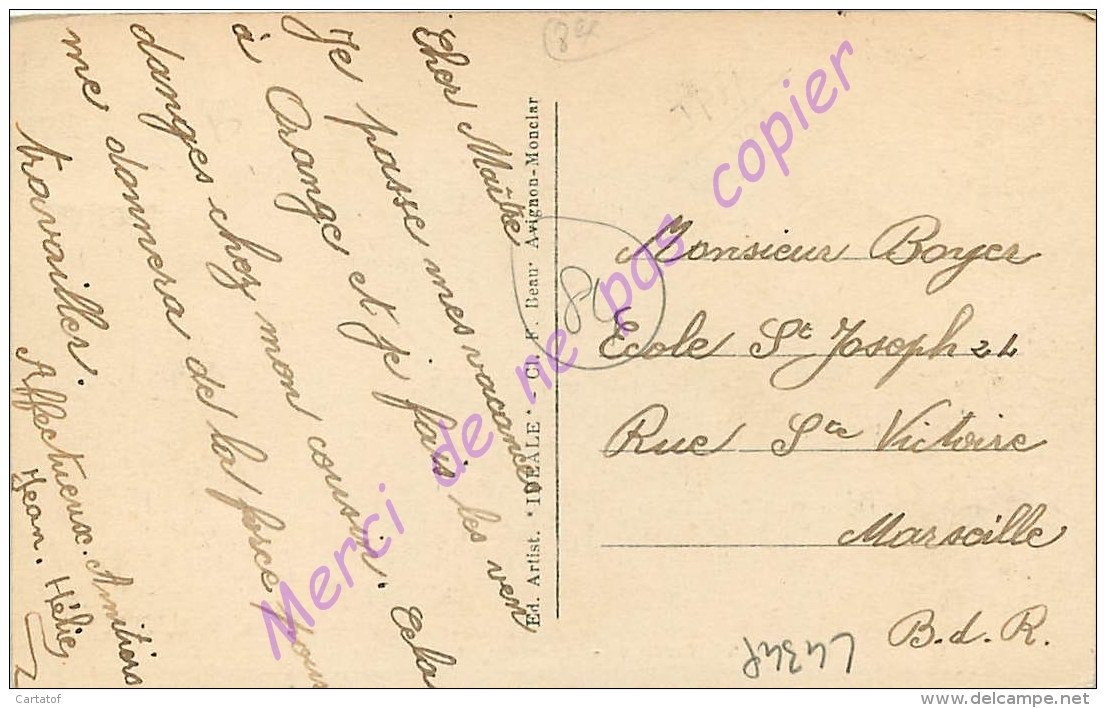 Cher Maître
Je passe mes vacances
à Orange et je fais les ven
danges chez mon cousin. Cela
me donnera de la force pour
travailler.
Affectueux. Amitiers
Jean. Hélie
Ed. Artist. "IDEALE" - Cl. F. Beau, Avignon-Monclar
84
Monsieur Boyer
Ecole St Joseph 24
Rue Ste Victoire
Marseille
B.d.R.
L4348
Merci de ne pas copier
Cartatof
www.delcampe.net